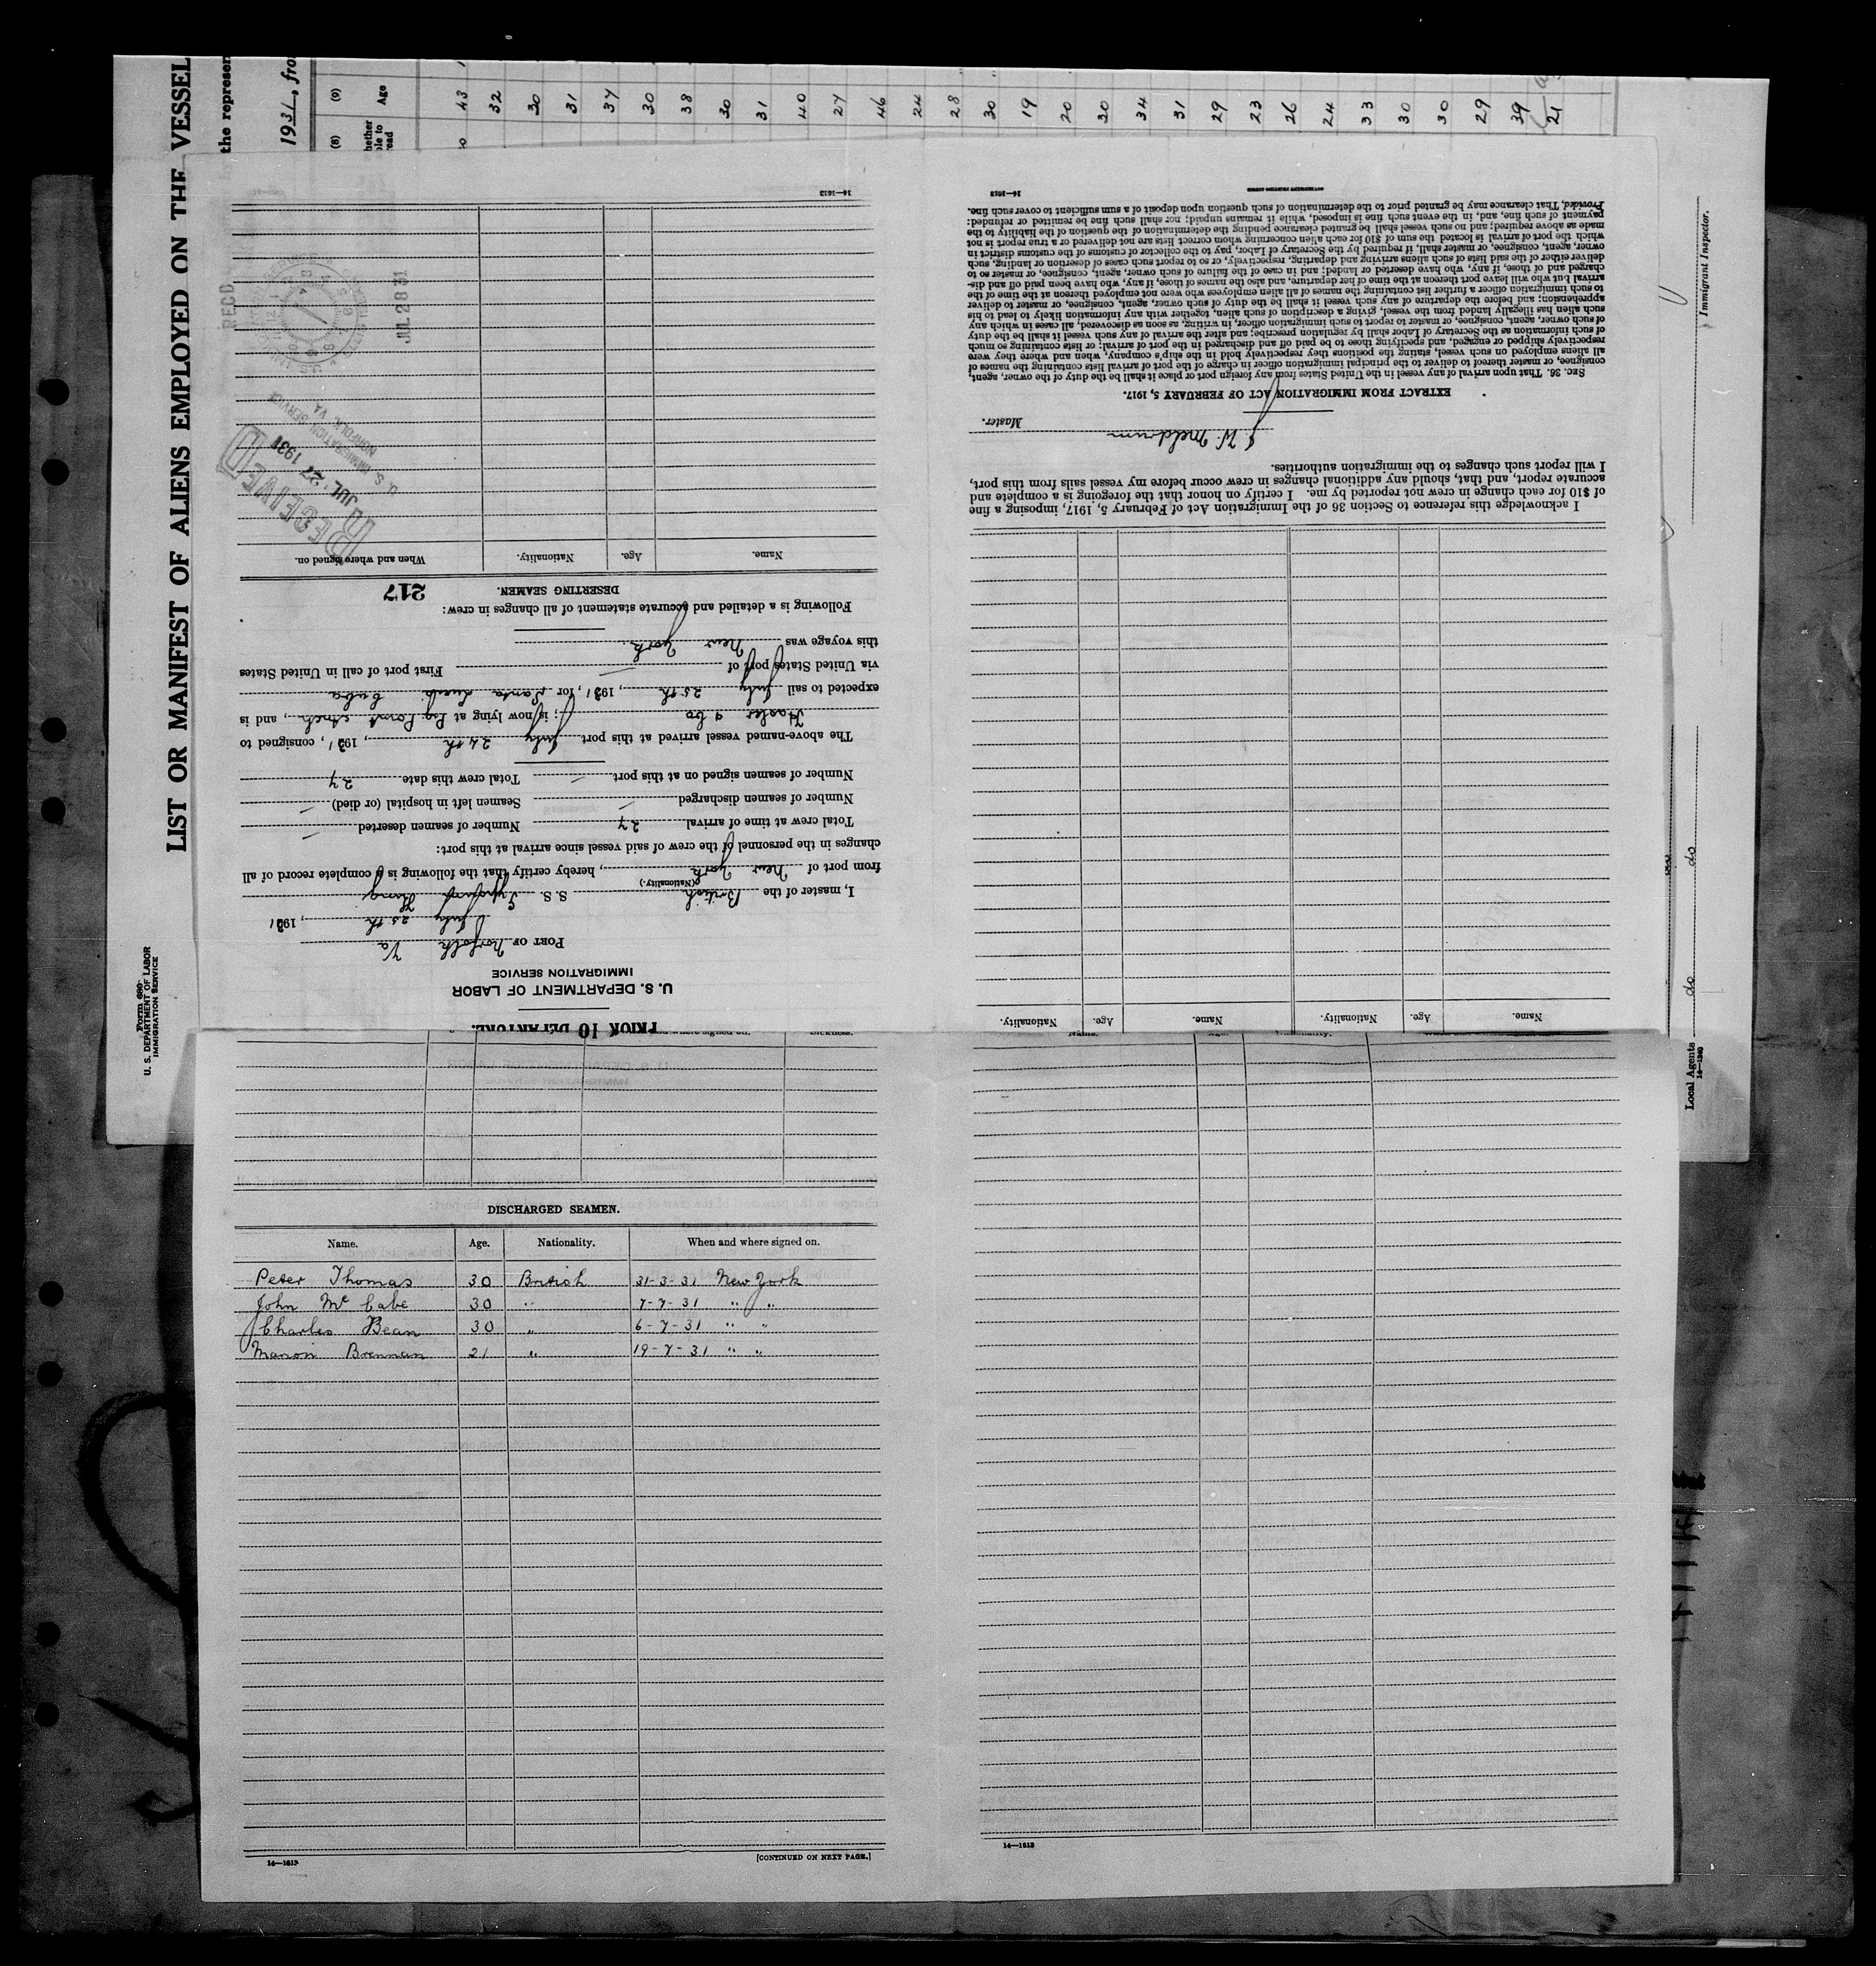 LIST OR MANIFEST OF ALIENS EMPLOYED ON THE VESSEL
the represen
1931, fro
(8)
(9)
Age
43
32
30
31
37
30
38
30
31
40
27
46
24
28
30
19
20
30
34
31
29
23
26
24
33
30
30
29
39
21
Form 680
U. S. DEPARTMENT OF LABOR
IMMIGRATION SERVICE
Immigrant Inspector.
do do
Local Agents
14—1240
PRIOR TO DEPARTURE.
U. S. DEPARTMENT OF LABOR
IMMIGRATION SERVICE
PORT OF Norfolk Va
July 25th, 1931
I, master of the British S. S.
(Nationality.)
from port of New York, hereby certify that the following is a complete record of all
changes in the personnel of the crew of said vessel since arrival at this port:
Total crew at time of arrival 27 Number of seamen deserted —
Number of seamen discharged — Seamen left in hospital (or died) —
Number of seamen signed on at this port — Total crew this date 27
The above-named vessel arrived at this port July 24th, 1931, consigned to
Hasler & Co; is now lying at, and is
expected to sail July 25th, 1931, for Santa Cuba
via United States port of — First port of call in United States
this voyage was New York
Following is a detailed and accurate statement of all changes in crew:
DESERTING SEAMEN.
217
Name. Age. Nationality. When and where signed on.
RECEIVED
JUL 27 1931
U. S. IMMIGRATION SERVICE
NORFOLK, VA
REC'D
JUL 28 31
14—1613
Name. Age. Nationality. Name. Age. Nationality.
I acknowledge this reference to Section 36 of the Immigration Act of February 5, 1917, imposing a fine
of $10 for each change in crew not reported by me. I certify on honor that the foregoing is a complete and
accurate report, and that, should any additional changes in crew occur before my vessel sails from this port,
I will report such changes to the immigration authorities.
J. W. Meldrum
Master.
EXTRACT FROM IMMIGRATION ACT OF FEBRUARY 5, 1917.
SEC. 36. That upon arrival of any vessel in the United States from any foreign port or place it shall be the duty of the owner, agent,
consignee, or master thereof to deliver to the principal immigration officer in charge of the port of arrival lists containing the names of
all aliens employed on such vessel, stating the positions they respectively hold in the ship's company, when and where they were
respectively shipped or engaged, and specifying those to be paid off and discharged in the port of arrival; or lists containing so much
of such information as the Secretary of Labor shall by regulation prescribe; and after the arrival of any such vessel it shall be the duty
of such owner, agent, consignee, or master to report to such immigration officer, in writing, as soon as discovered, all cases in which any
such alien has illegally landed from the vessel, giving a description of such alien, together with any information likely to lead to his
apprehension; and before the departure of any such vessel it shall be the duty of such owner, agent, consignee, or master to deliver
to such immigration officer a further list containing the names of all alien employees who were not employed thereon at the time of the
arrival but who will leave port thereon at the time of her departure, and also the names of those, if any, who have been paid off and dis-
charged and of those, if any, who have deserted or landed; and in case of the failure of such owner, agent, consignee, or master so to
deliver either of the said lists of such aliens arriving and departing, respectively, or so to report such cases of desertion or landing, such
owner, agent, consignee, or master shall, if required by the Secretary of Labor, pay to the collector of customs of the customs district in
which the port of arrival is located the sum of $10 for each alien concerning whom correct lists are not delivered or a true report is not
made as above required; and no such vessel shall be granted clearance pending the determination of the question of the liability to the
payment of such fine, and, in the event such fine is imposed, while it remains unpaid; nor shall such fine be remitted or refunded:
Provided, That clearance may be granted prior to the determination of such question upon deposit of a sum sufficient to cover such fine.
14—1613
GOVERNMENT PRINTING OFFICE
DISCHARGED SEAMEN.
Name. Age. Nationality. When and where signed on.
Peter Thomas 30 British 31-3-31 New York
John McCabe 30 " 7-7-31 " "
Charles Bean 30 " 6-7-31 " "
Brennan 21 " 19-7-31 " "
14—1613
[CONTINUED ON NEXT PAGE.]
14—1613